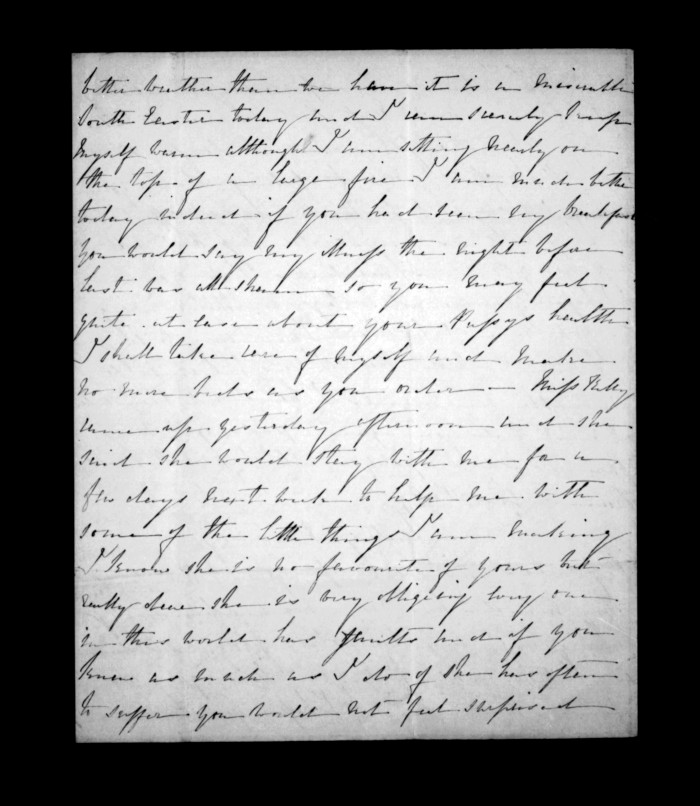 better weather than we have it is a miserable
South Easter today and I can scarcely keep
myself warm although I am sitting nearly on
the top of a large fire I am much better
today indeed if you had seen my breakfast
you would say my illness the night before
last was all sham so you may feel
quite at ease about your Pussys health
I shall take care of myself and make
no more beds as you order — Miss Kelly
came up yesterday afternoon and she
said she would stay with me for a
few days next week to help me with
some of the little things I am making
I know she is no favourite of yours but
really dear she is very obliging every one
in this world has faults and if you
knew as much as I do of she has often
to suffer you would not feel surprised